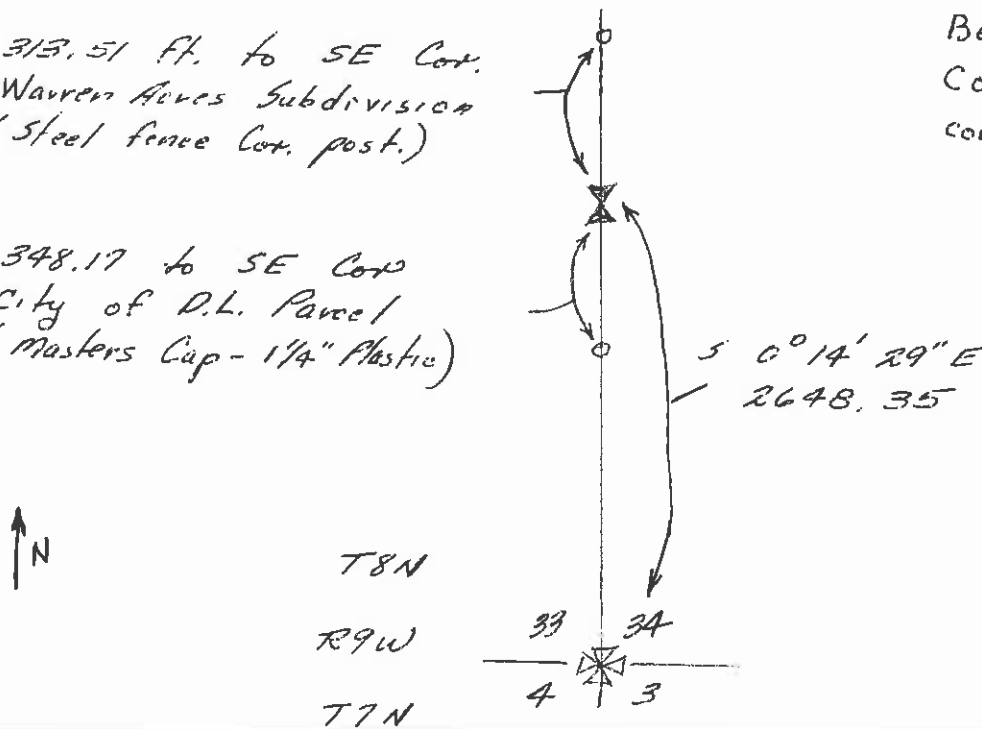 313.51 Ft. to SE Cor.
Warren Acres Subdivision
(Steel fence Cor. post.)
348.17 to SE Cor
City of D.L. Parcel
(Masters Cap - 1¼" Plastic)
S 0° 14' 29" E
2648.35
N
T8N
R9W
T7N
33 34
4 3